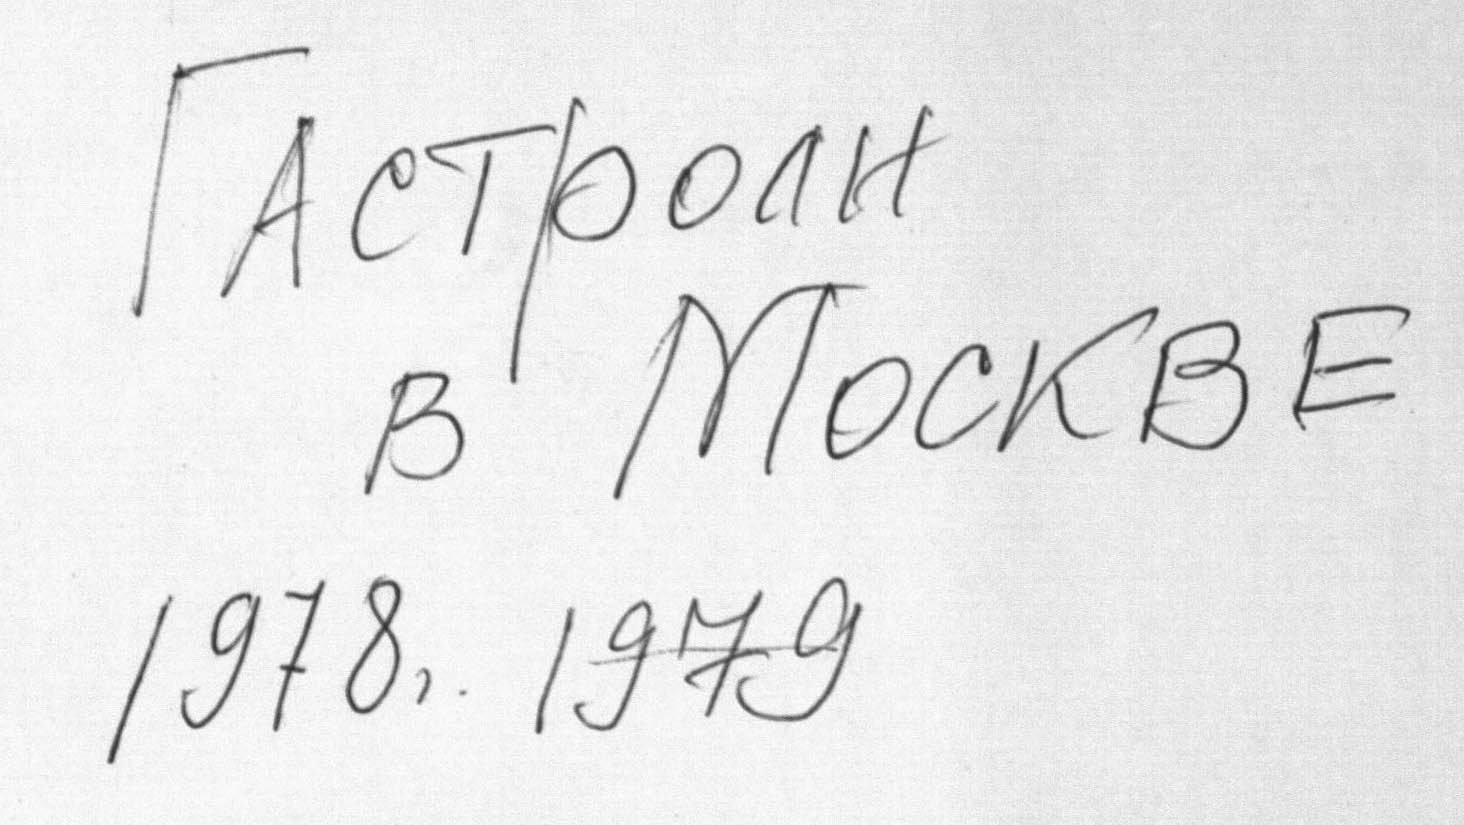 Гастроли
в Москве
1978, 1979